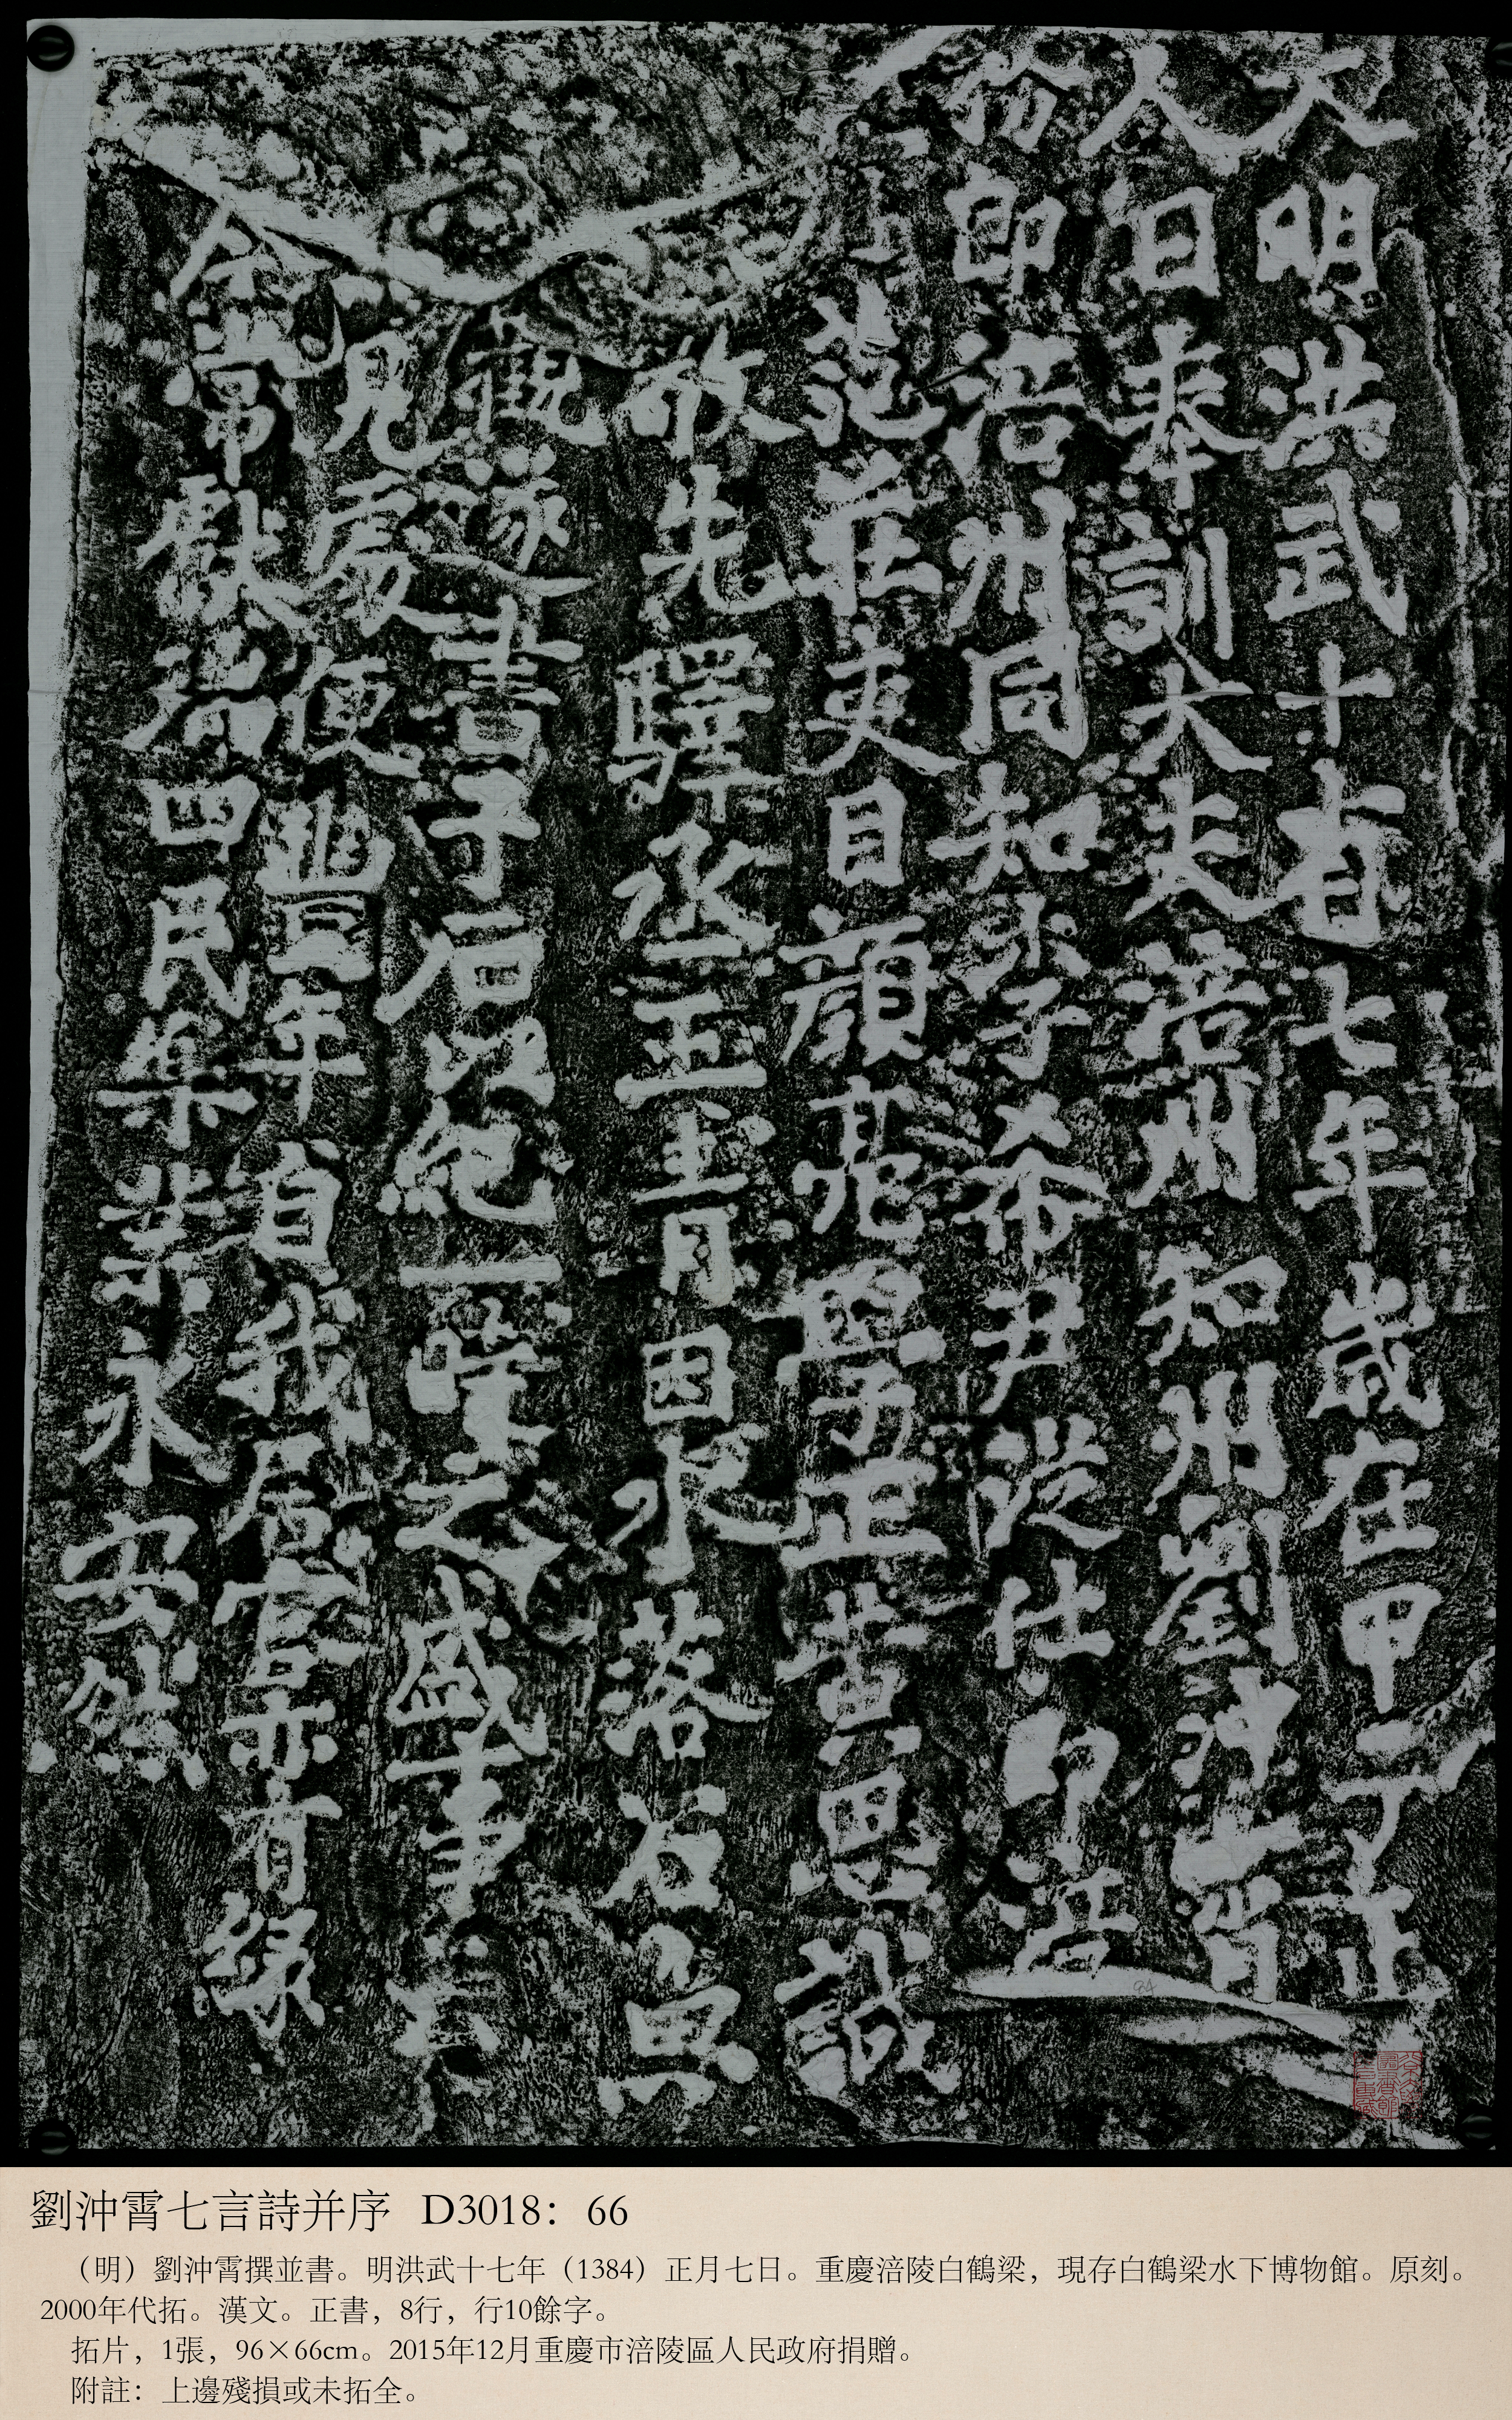 大明洪武十有七年歲在甲子正
人日奉訓大夫涪州知州劉沖霄
務郎涪州同知李希尹從仕郎涪
范莊吏目顏亮學正黃思誠
敬先驛丞王青因水落石魚
觀遂書于石以紀一時之盛事云
見處便豐年自我居官亦有緣
今常獻瑞四民樂業永安然
劉沖霄七言詩并序 D3018：66
（明）劉沖霄撰並書。明洪武十七年（1384）正月七日。重慶涪陵白鶴梁，現存白鶴梁水下博物館。原刻。
2000年代拓。漢文。正書，8行，行10餘字。
拓片，1張，96×66cm。2015年12月重慶市涪陵區人民政府捐贈。
附註：上邊殘損或未拓全。